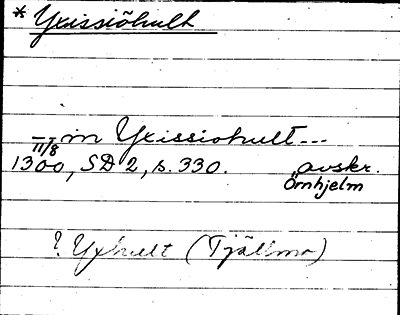 * Yxissiöhult
— in Yxissiohult---
11/8 1300, SD 2, s. 330. avskr.
Örnhjelm
? Yxhult (Tjällmo)